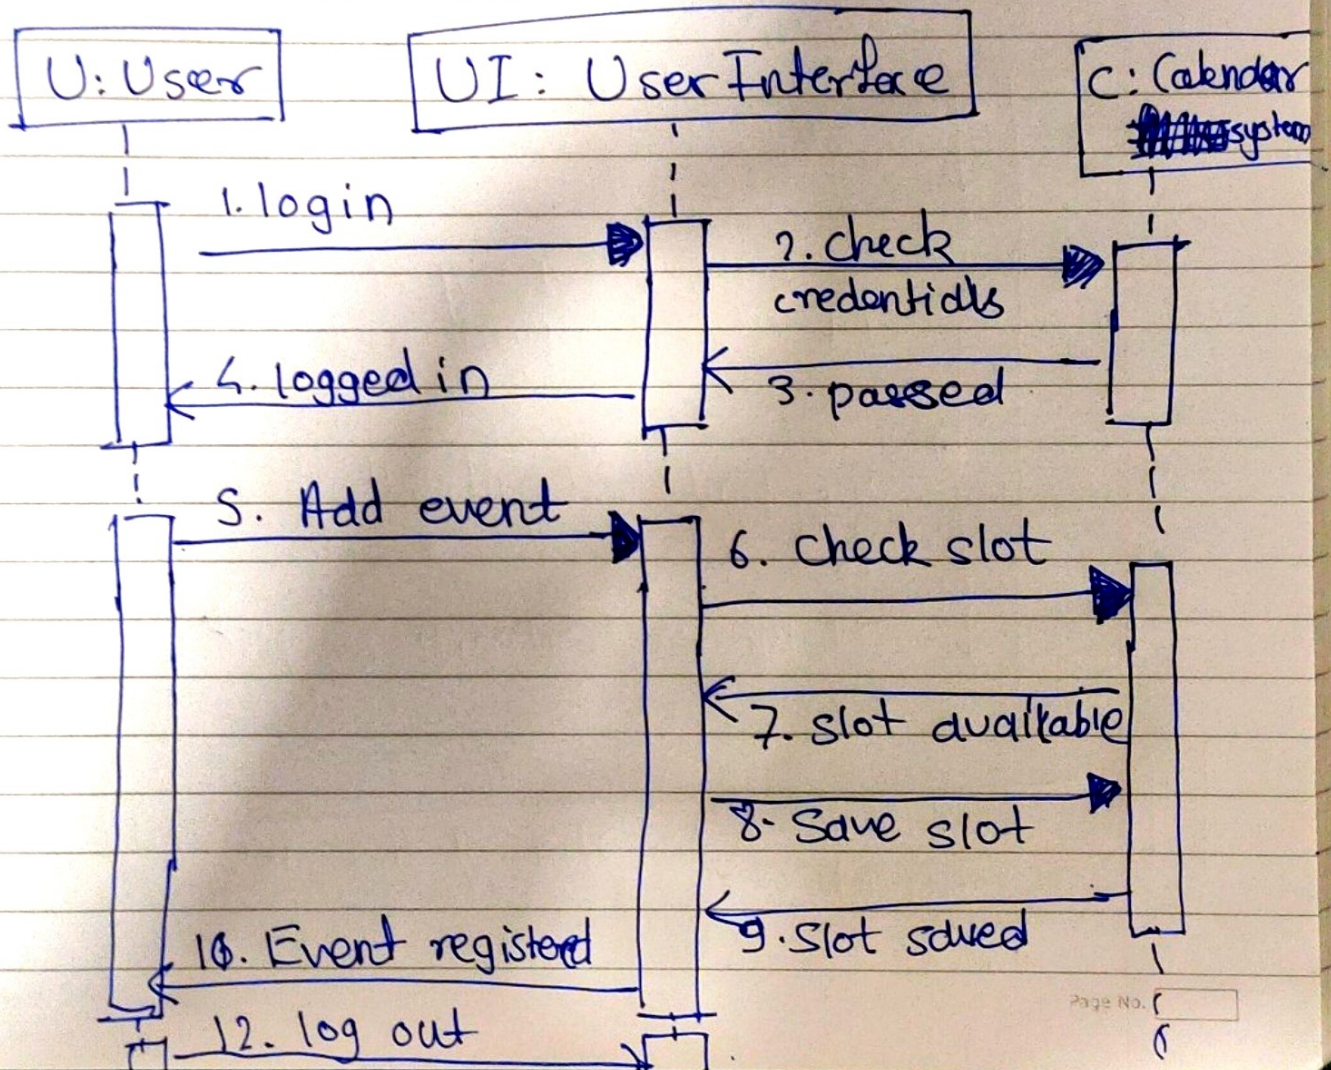 U: User
UI: User Interface
C: Calendar
system
1. login
2. check
credentials
3. passed
4. logged in
5. Add event
6. check slot
7. slot available
8- Save slot
9. slot saved
10. Event registerd
Page No.
12. log out